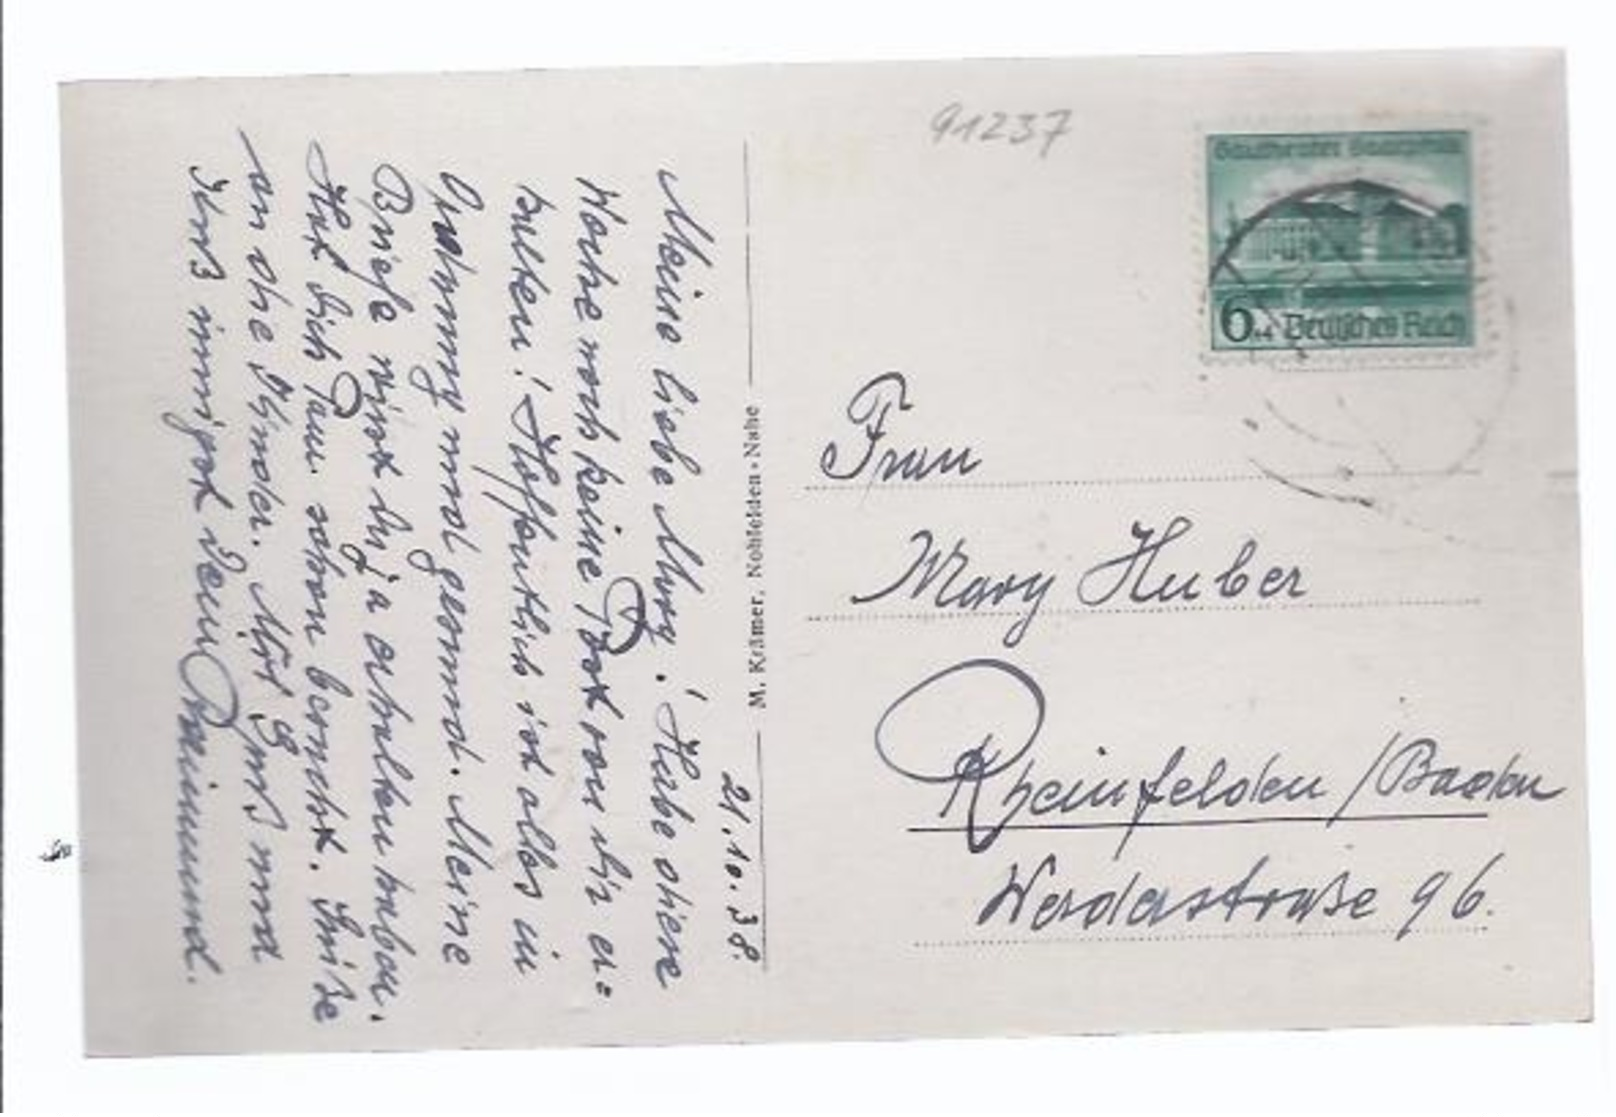 21.10.38.
Meine liebe Mary! Habe diese
Woche noch keine Post von dir er=
halten! Hoffentlich ist alles in
Ordnung und gesund. Meine
Briefe wirst du ja erhalten haben.
Hat dich schon besucht. Grüße
an die Kinder. Mit Gruß und
Kuß innigst dein Raimund.
M. Krämer, Nohfelden-Nahe
91237
Gautheater Saarpfalz
6+4 Deutsches Reich
Frau
Mary Huber
Rheinfelden / Baden
Werderstraße 96.